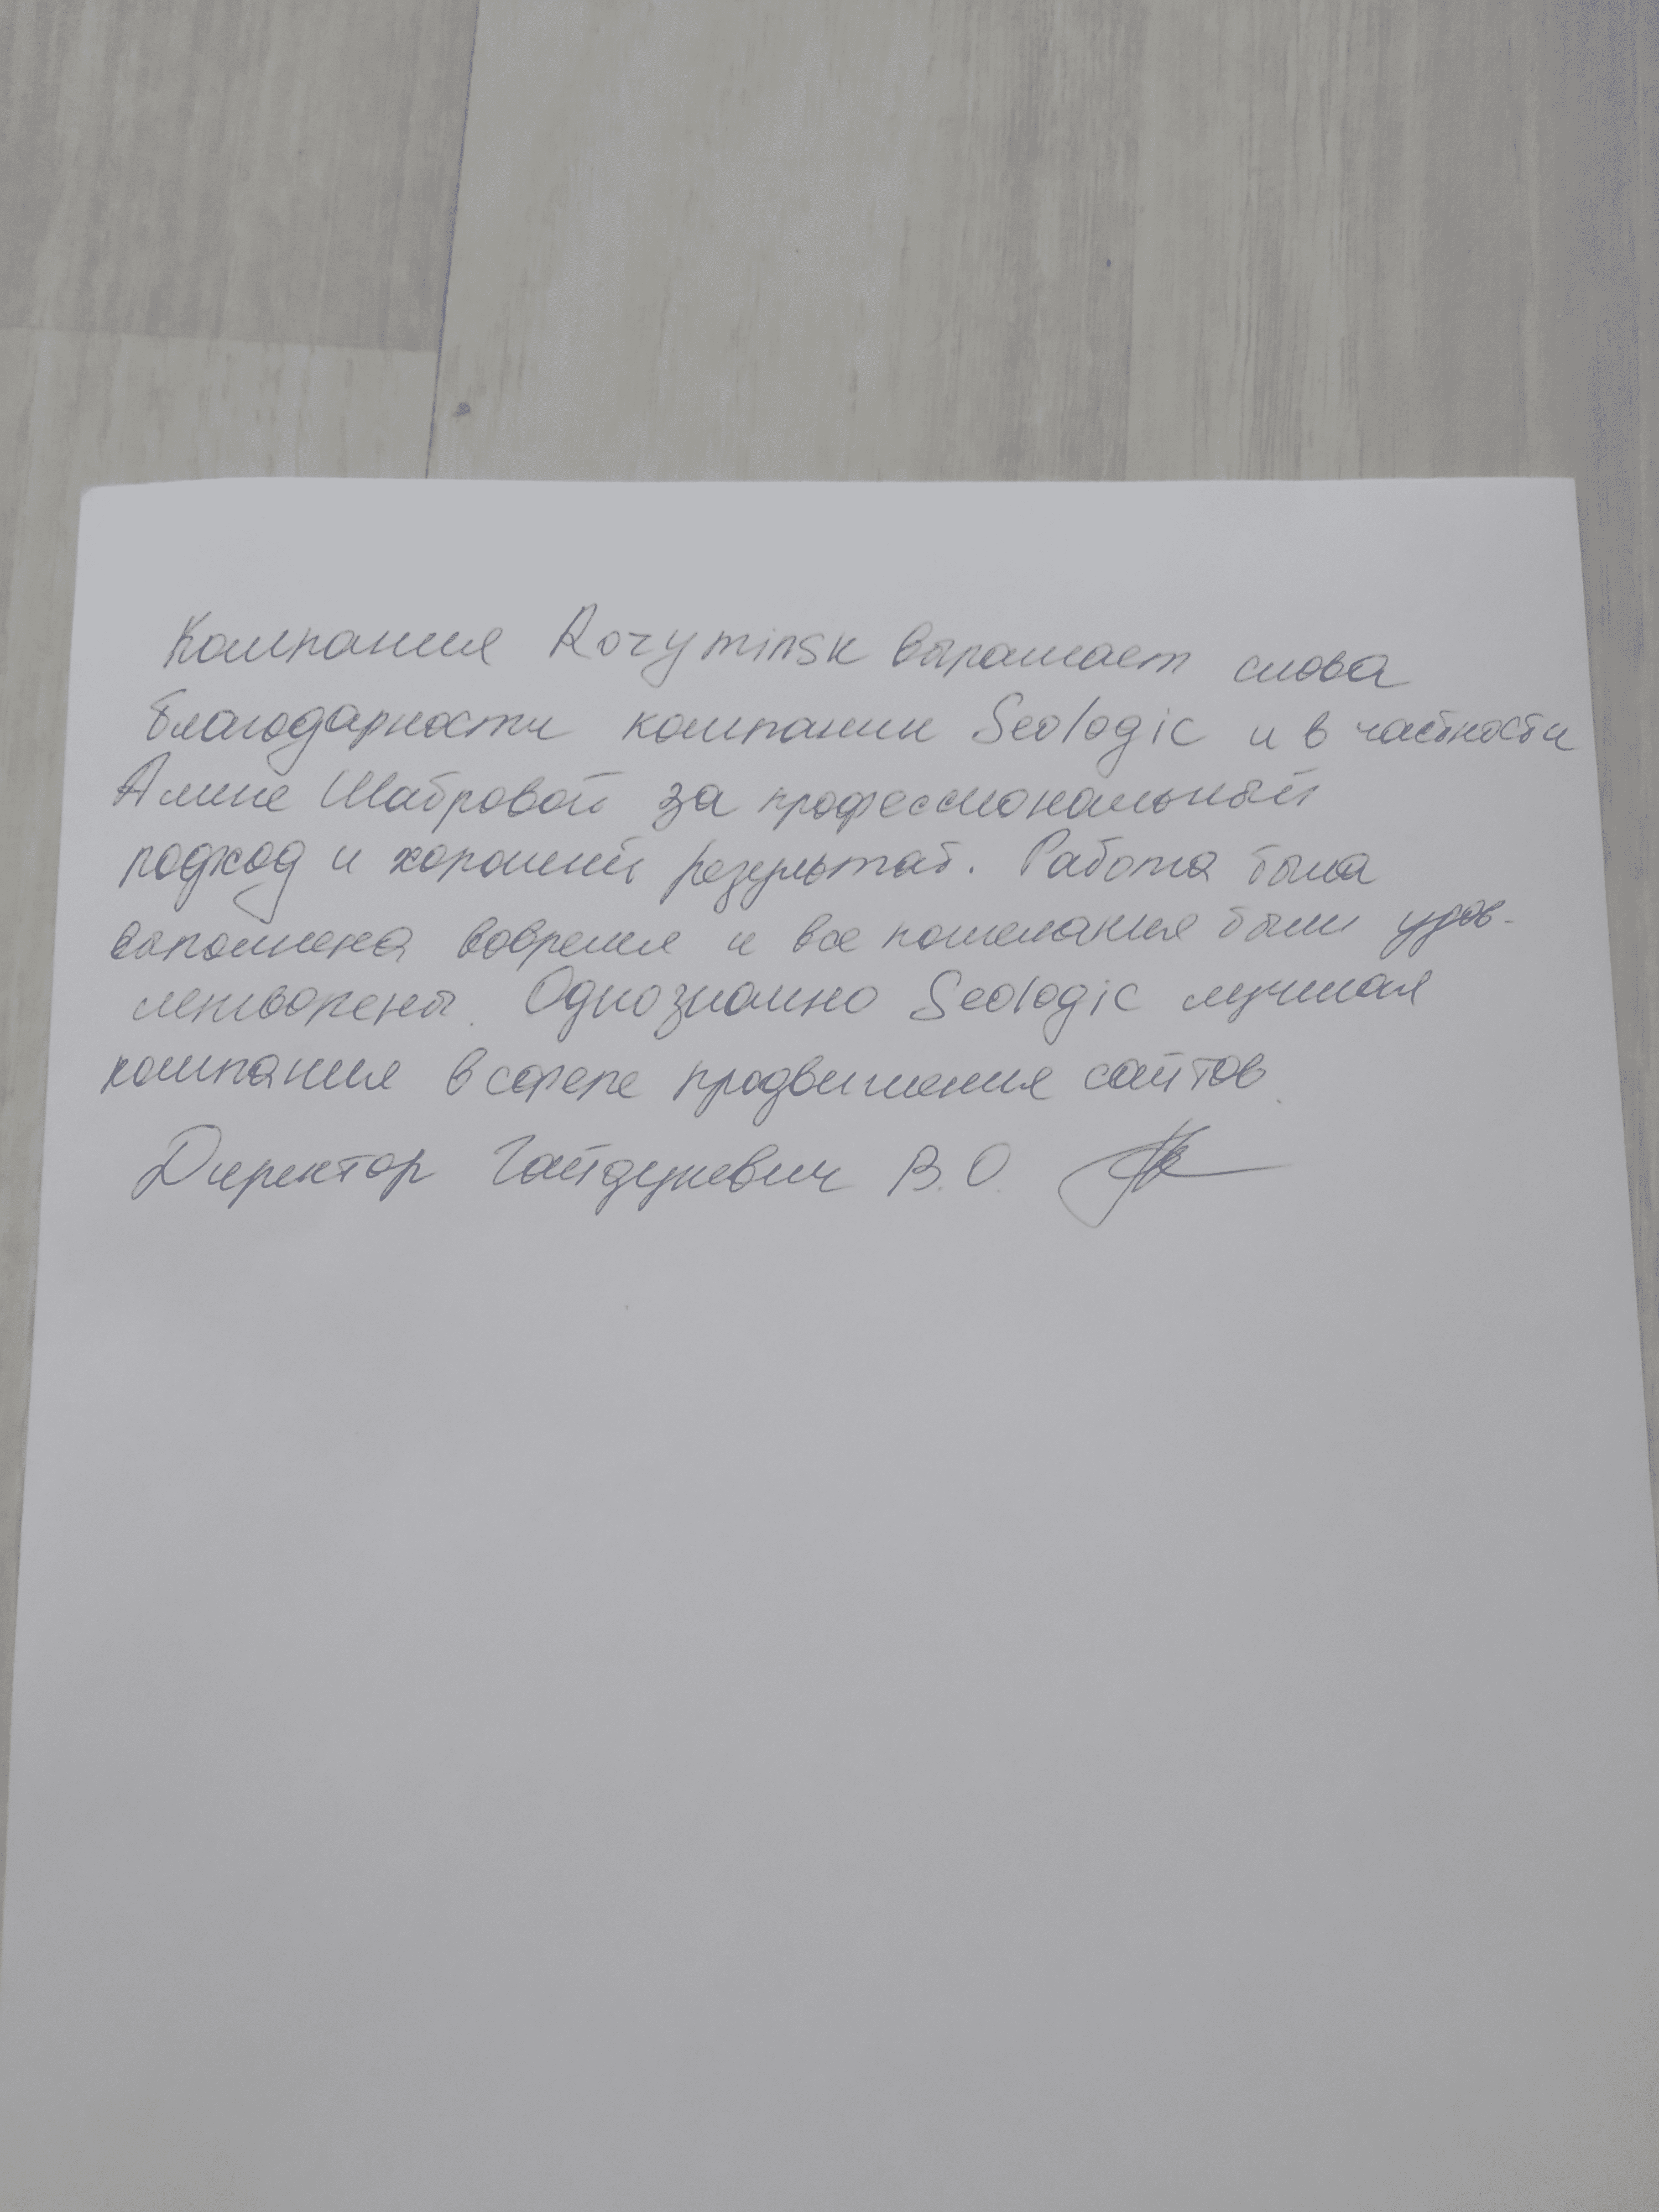 Компания Rozyminsk выражает слова
благодарности компании Seologic и в частности
Алине Шабровой за профессиональный
подход и хороший результат. Работа была
выполнена вовремя и все пожелания были удов-
летворены. Однозначно Seologic лучшая
компания в сфере продвижения сайтов.
Директор Гайдукевич В.О.